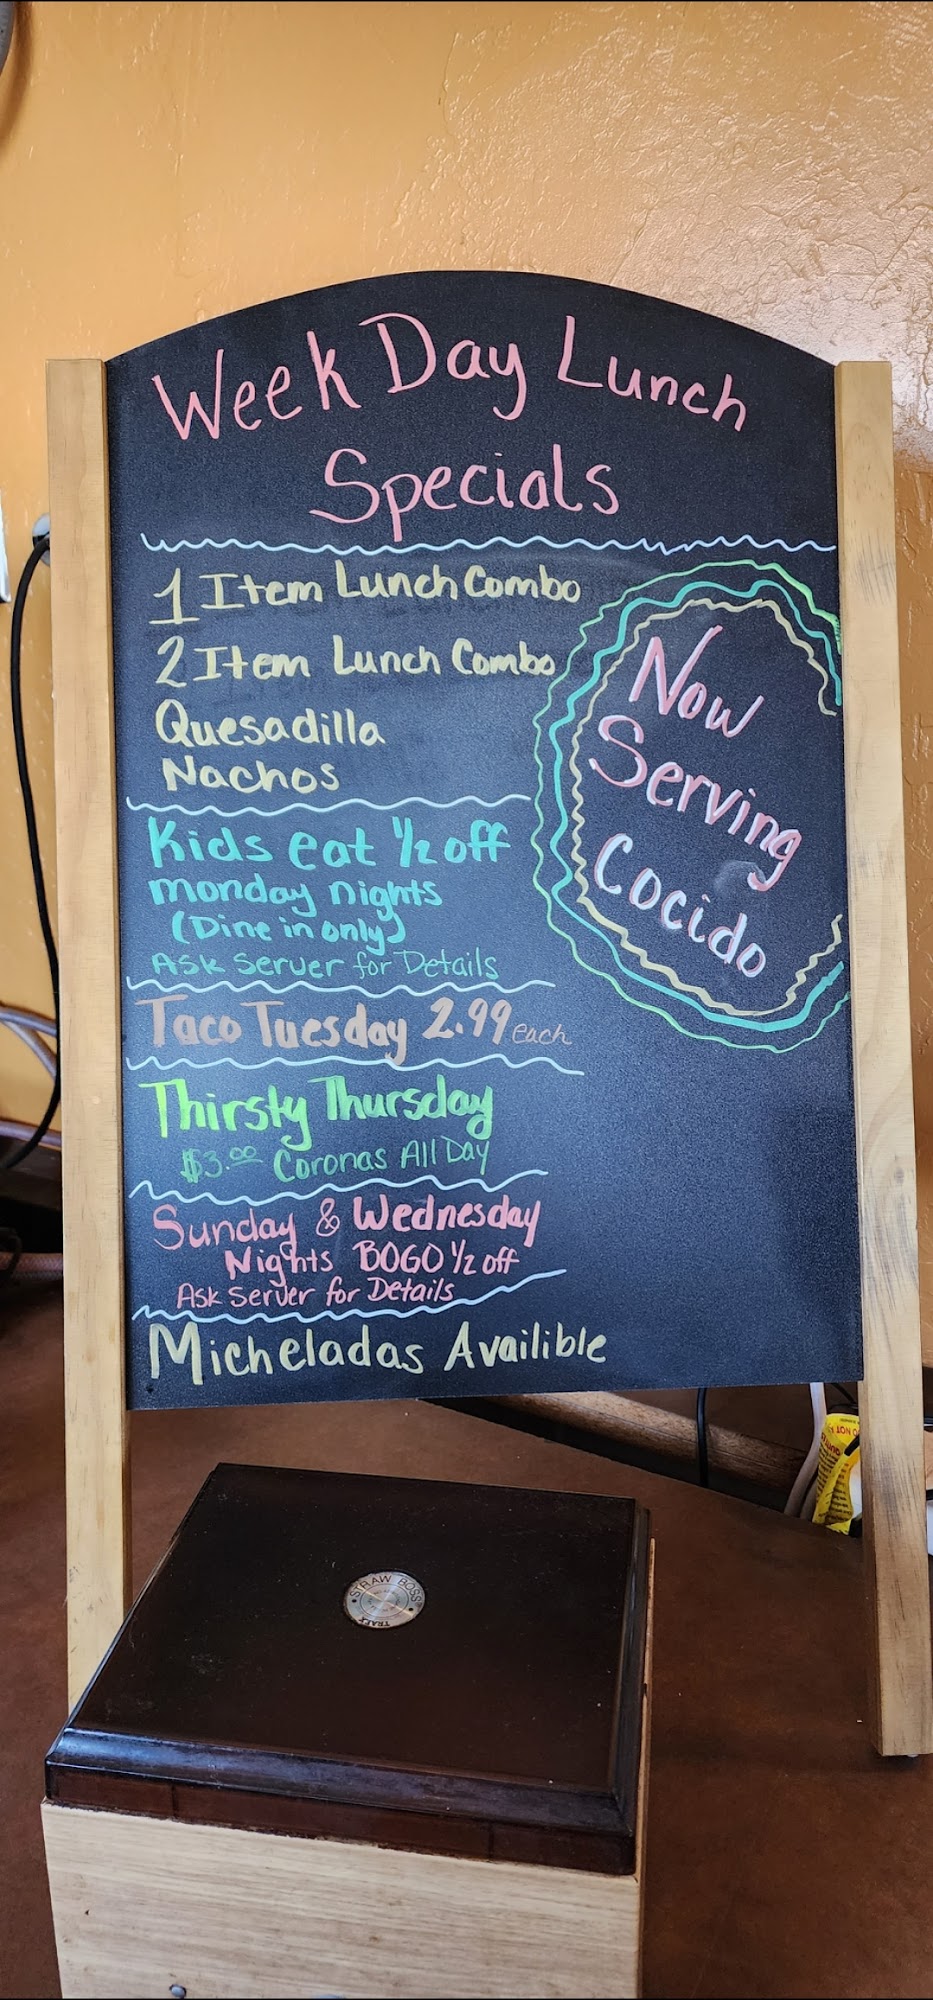 Week Day Lunch
Specials
1 Item Lunch Combo
2 Item Lunch Combo
Quesadilla
Nachos
Now
Serving
Cocido
Kids eat 1/2 off
monday nights
(Dine in only)
Ask Server for Details
Taco Tuesday 2.99 each
Thirsty Thursday
$3.00 Coronas All Day
Sunday & Wednesday
Nights BOGO 1/2 off
Ask Server for Details
Micheladas Availible
STRAW BOSS
TRAEX